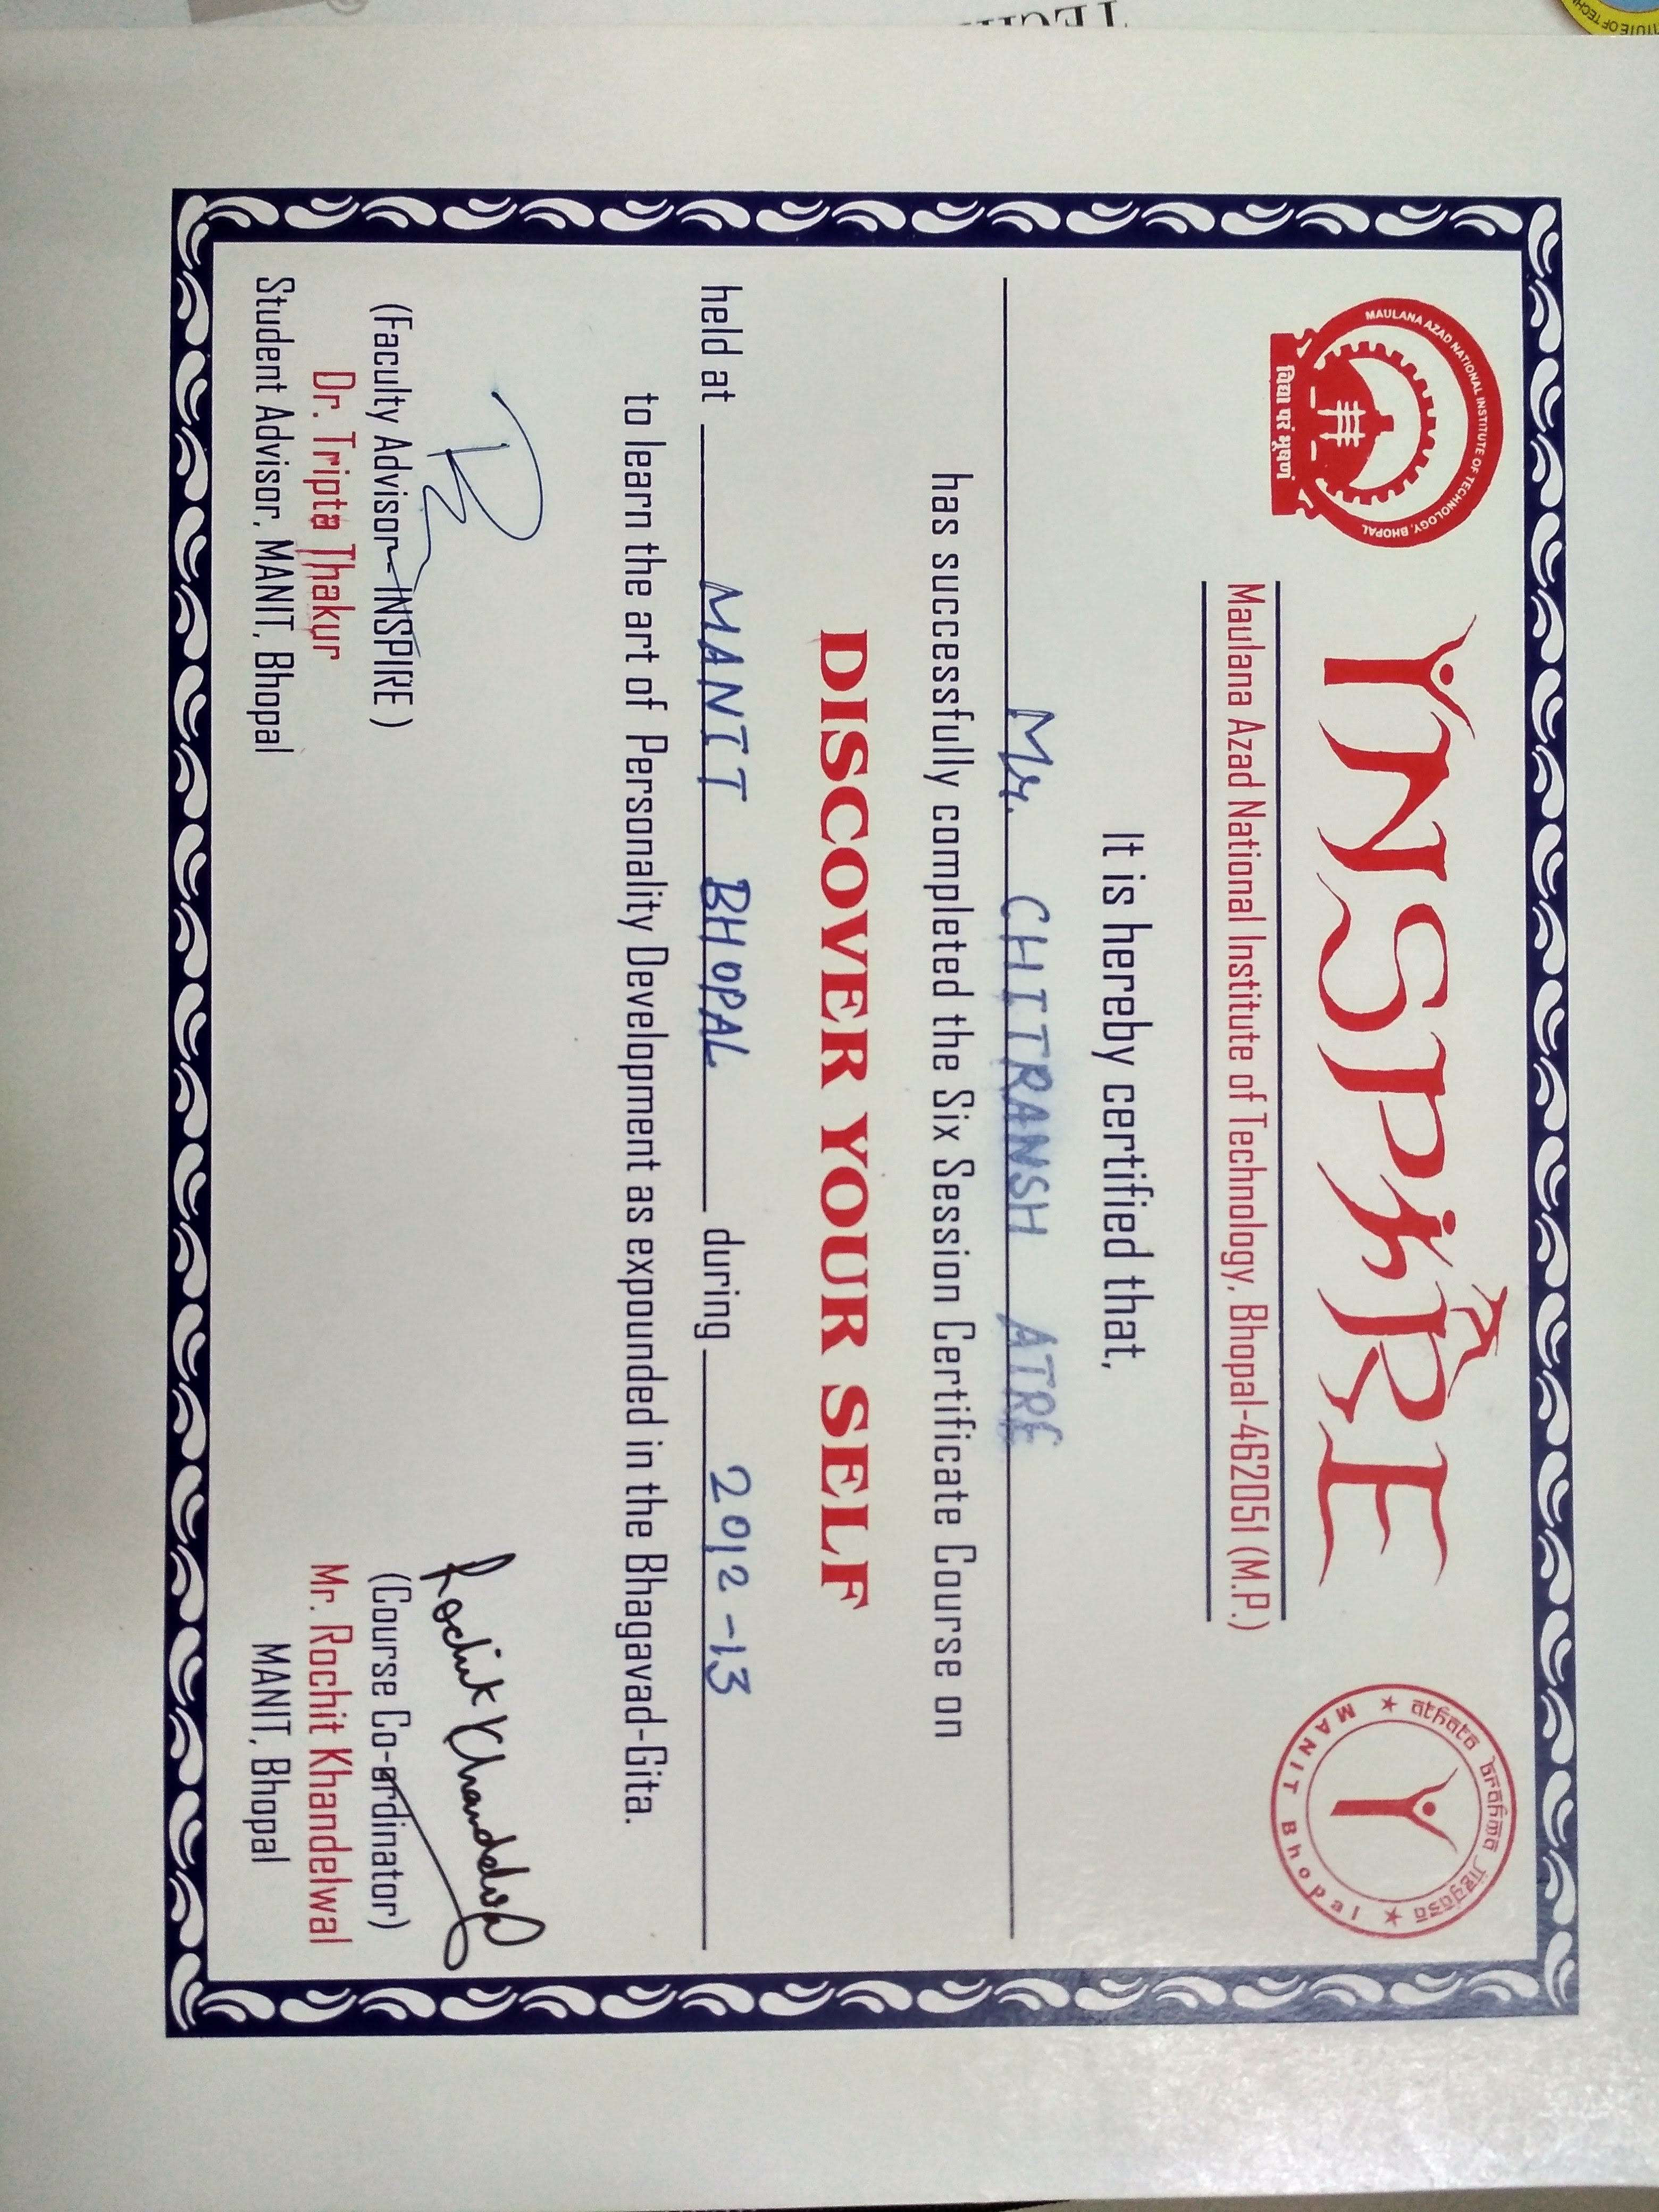 MAULANA AZAD NATIONAL INSTITUTE OF TECHNOLOGY, BHOPAL
विद्या परं भूषणं
INSPIRE
athato brahma jigyasa
★ MANIT Bhopal ★
Maulana Azad National Institute of Technology, Bhopal-462051 (M.P.)
It is hereby certified that,
Mr. CHITRANSH ATRE
has successfully completed the Six Session Certificate Course on
DISCOVER YOUR SELF
held at MANIT BHOPAL during 2012-13
to learn the art of Personality Development as expounded in the Bhagavad-Gita.
Rochit Khandelwal
(Faculty Advisor- INSPIRE )
(Course Co-ordinator)
Dr. Tripta Thakur
Mr. Rochit Khandelwal
Student Advisor, MANIT, Bhopal
MANIT, Bhopal